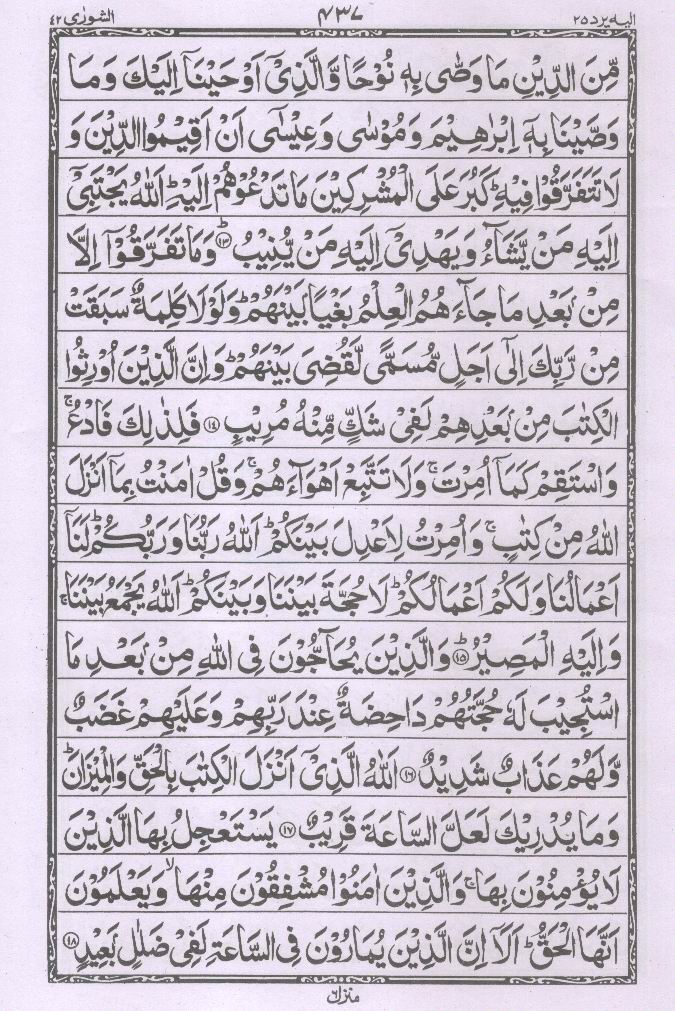 الیہ یرد ۲۵
۴۳۷
الشورٰی ۴۲
مِّنَ الدِّيْنِ مَا وَصّٰى بِهٖ نُوْحًا وَّالَّذِيْٓ اَوْحَيْنَآ اِلَيْكَ وَمَا
وَصَّيْنَا بِهٖٓ اِبْرٰهِيْمَ وَمُوْسٰى وَعِيْسٰٓى اَنْ اَقِيْمُوا الدِّيْنَ وَ
لَا تَتَفَرَّقُوْا فِيْهِ ؕ كَبُرَ عَلَى الْمُشْرِكِيْنَ مَا تَدْعُوْهُمْ اِلَيْهِ ؕ اَللّٰهُ يَجْتَبِيْٓ
اِلَيْهِ مَنْ يَّشَآءُ وَيَهْدِيْٓ اِلَيْهِ مَنْ يُّنِيْبُ ؕ ۱۳ وَمَا تَفَرَّقُوْٓا اِلَّا
مِنْۢ بَعْدِ مَا جَآءَهُمُ الْعِلْمُ بَغْيًاۢ بَيْنَهُمْ ؕ وَلَوْلَا كَلِمَةٌ سَبَقَتْ
مِنْ رَّبِّكَ اِلٰٓى اَجَلٍ مُّسَمًّى لَّقُضِيَ بَيْنَهُمْ ؕ وَاِنَّ الَّذِيْنَ اُوْرِثُوا
الْكِتٰبَ مِنْۢ بَعْدِهِمْ لَفِيْ شَكٍّ مِّنْهُ مُرِيْبٍ ۱۴ فَلِذٰلِكَ فَادْعُ ۚ
وَاسْتَقِمْ كَمَآ اُمِرْتَ ۚ وَلَا تَتَّبِعْ اَهْوَآءَهُمْ ۚ وَقُلْ اٰمَنْتُ بِمَآ اَنْزَلَ
اللّٰهُ مِنْ كِتٰبٍ ۚ وَاُمِرْتُ لِاَعْدِلَ بَيْنَكُمْ ؕ اَللّٰهُ رَبُّنَا وَرَبُّكُمْ ؕ لَنَآ
اَعْمَالُنَا وَلَكُمْ اَعْمَالُكُمْ ؕ لَا حُجَّةَ بَيْنَنَا وَبَيْنَكُمْ ؕ اَللّٰهُ يَجْمَعُ بَيْنَنَا ۚ
وَاِلَيْهِ الْمَصِيْرُ ؕ ۱۵ وَالَّذِيْنَ يُحَآجُّوْنَ فِي اللّٰهِ مِنْۢ بَعْدِ مَا
اسْتُجِيْبَ لَهٗ حُجَّتُهُمْ دَاحِضَةٌ عِنْدَ رَبِّهِمْ وَعَلَيْهِمْ غَضَبٌ
وَّلَهُمْ عَذَابٌ شَدِيْدٌ ۱۶ اَللّٰهُ الَّذِيْٓ اَنْزَلَ الْكِتٰبَ بِالْحَقِّ وَالْمِيْزَانَ ؕ
وَمَا يُدْرِيْكَ لَعَلَّ السَّاعَةَ قَرِيْبٌ ۱۷ يَسْتَعْجِلُ بِهَا الَّذِيْنَ
لَا يُؤْمِنُوْنَ بِهَا ۚ وَالَّذِيْنَ اٰمَنُوْا مُشْفِقُوْنَ مِنْهَا ۙ وَيَعْلَمُوْنَ
اَنَّهَا الْحَقُّ ؕ اَلَآ اِنَّ الَّذِيْنَ يُمَارُوْنَ فِي السَّاعَةِ لَفِيْ ضَلٰلٍۢ بَعِيْدٍ ۱۸
منزل ۶